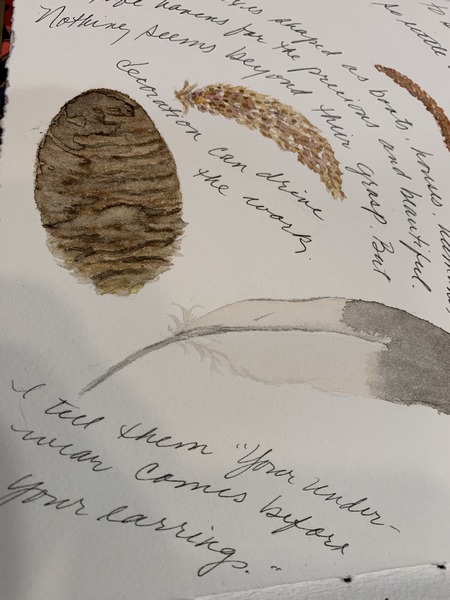 so little
shaped as boats, houses,
havens for the precious and beautiful.
Nothing seems beyond their grasp. But
decoration can drive
the work.
I tell them "Your under-
wear comes before
your earrings."